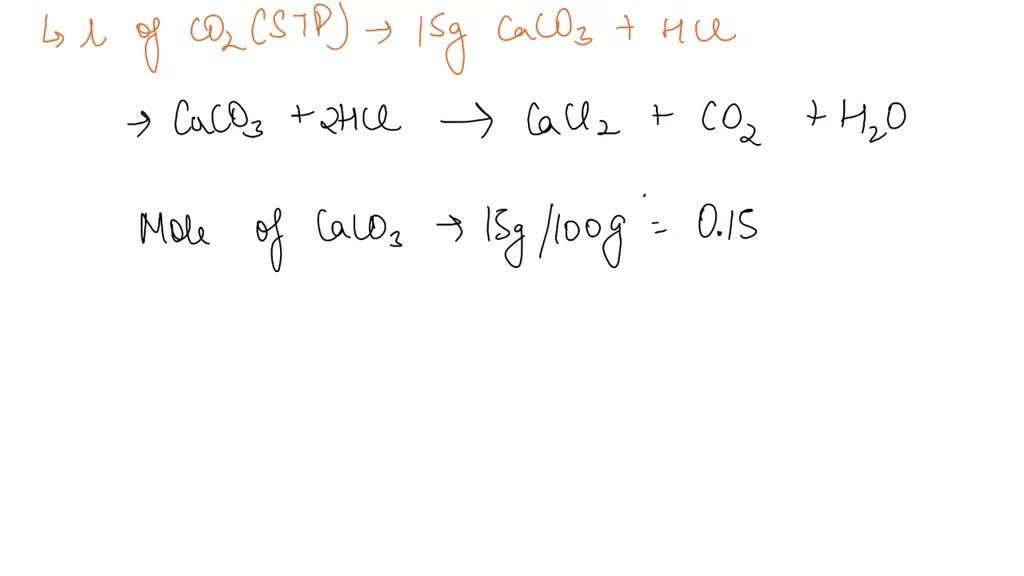 ↳ L of CO₂ (STP) → 15g CaCO₃ + HCl
→ CaCO₃ + 2HCl → CaCl₂ + CO₂ + H₂O
Mole of CaCO₃ → 15g/100g = 0.15